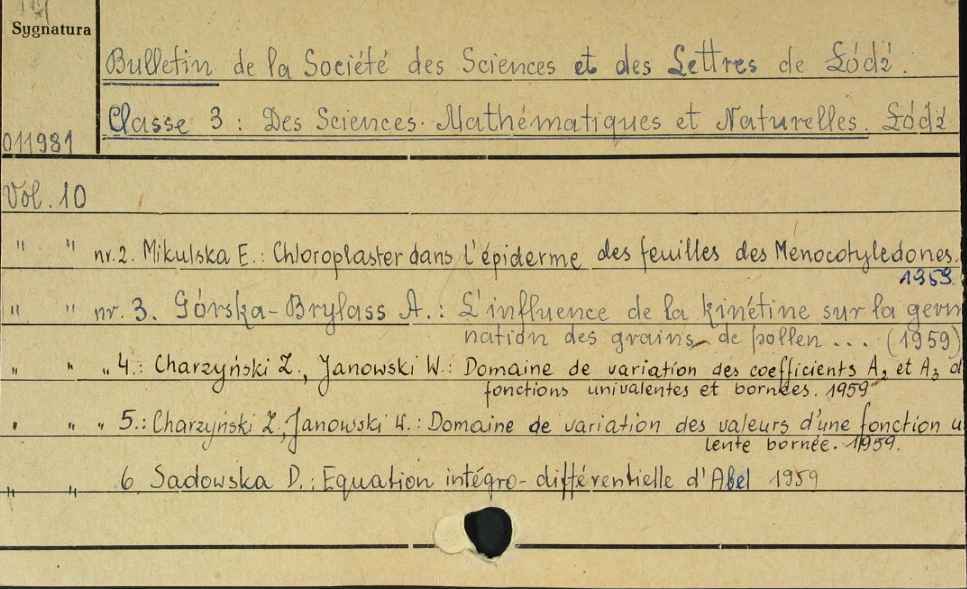 Sygnatura
Bulletin de la Société des Sciences et des Lettres de Łódź.
Classe 3 : Des Sciences Mathématiques et Naturelles. Łódź
011981
Vol. 10
" " nr. 2. Mikulska E.: Chloroplaster dans l'épiderme des feuilles des Menocotyledones.
1959.
" " nr. 3. Górska-Brylass A.: L'influence de la kinétine sur la germ
nation des grains de pollen ... (1959)
" " " 4.: Charzyński Z., Janowski W.: Domaine de variation des coefficients A2 et A3 d
fonctions univalentes et bornées. 1959
" " " 5.: Charzyński Z., Janowski W.: Domaine de variation des valeurs d'une fonction u
lente bornée. 1959.
" " 6. Sadowska D.: Equation intégro-différentielle d'Abel 1959